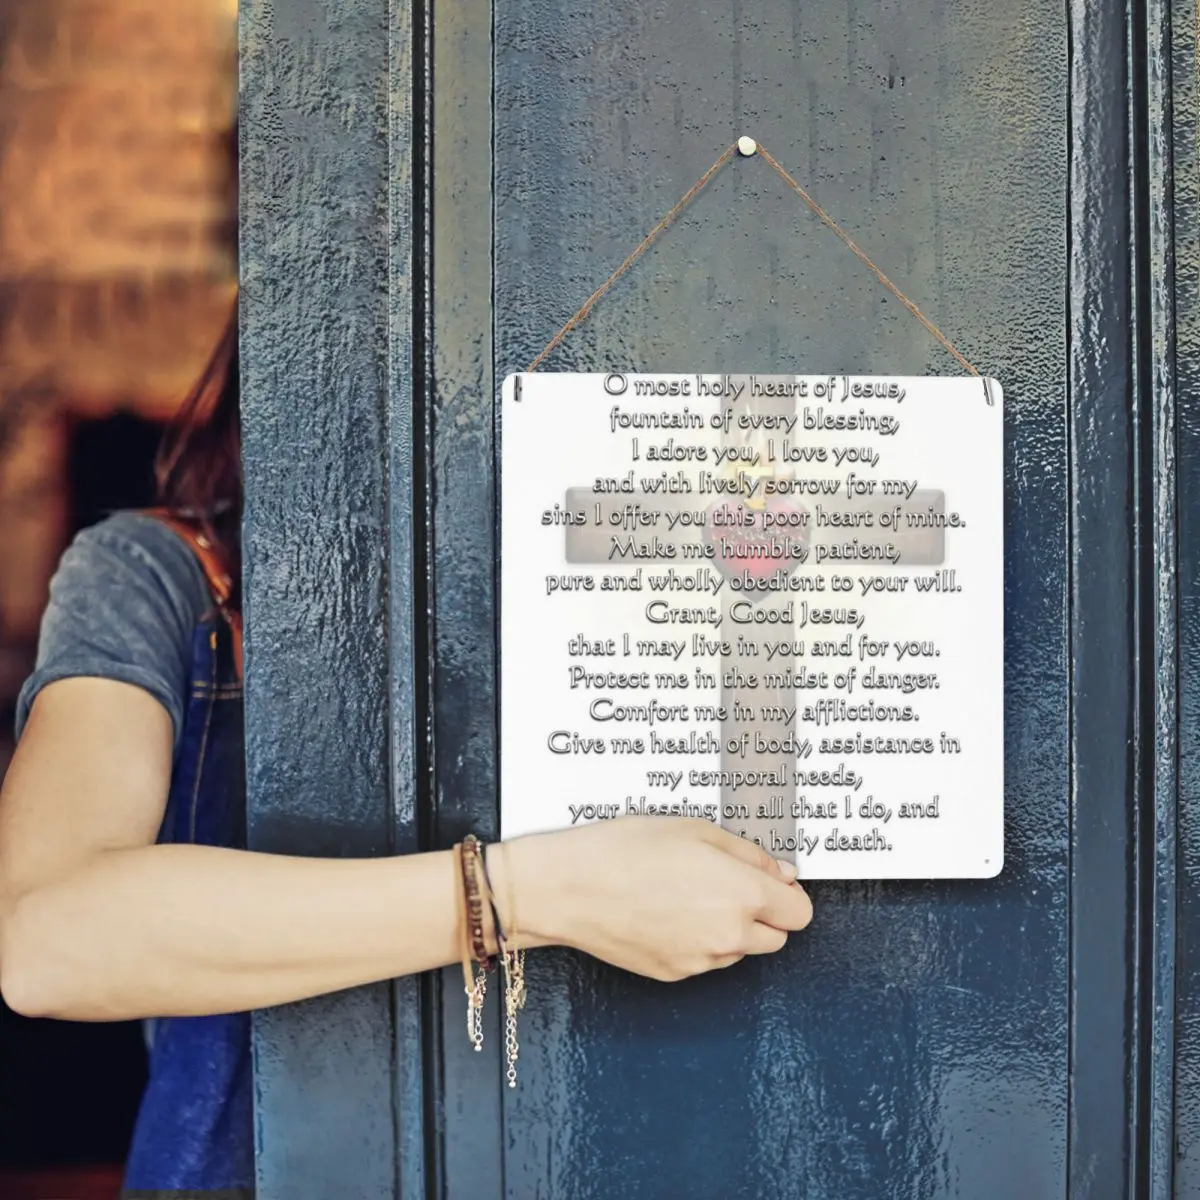 O most holy heart of Jesus,
fountain of every blessing,
I adore you, I love you,
and with lively sorrow for my
sins I offer you this poor heart of mine.
Make me humble, patient,
pure and wholly obedient to your will.
Grant, Good Jesus,
that I may live in you and for you.
Protect me in the midst of danger.
Comfort me in my afflictions.
Give me health of body, assistance in
my temporal needs,
your blessing on all that I do, and
holy death.